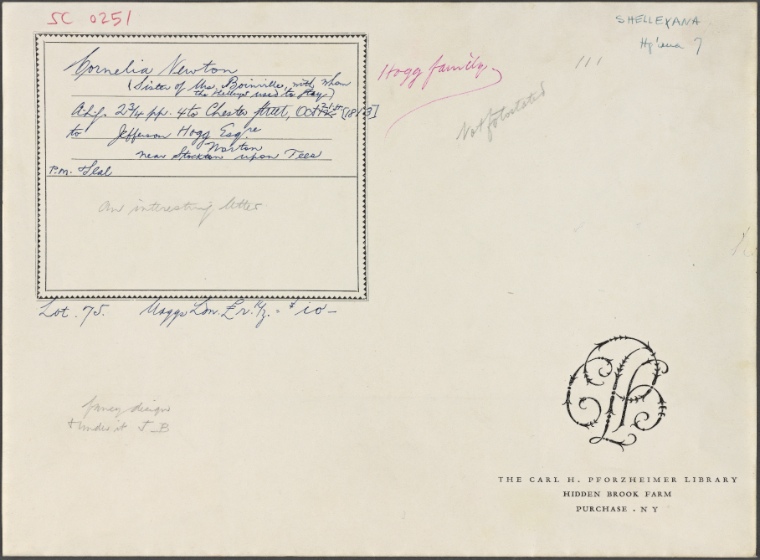 SC 0251
SHELLEYANA
Cornelia Newton
(Sister of Mrs. Boinville, with whom
the Shelleys used to stay)
A.L.S. 2 3/4 pp. 4to Chester Street, Oct [1813]
to Jefferson Hogg Esqre
Norton
near Stockton upon Tees
P.M. & Seal
An interesting letter
Hogg family
Not fotostated
Lot. 75. Maggs Lon. - $10-
fancy design
& under it J B
THE CARL H. PFORZHEIMER LIBRARY
HIDDEN BROOK FARM
PURCHASE . NY